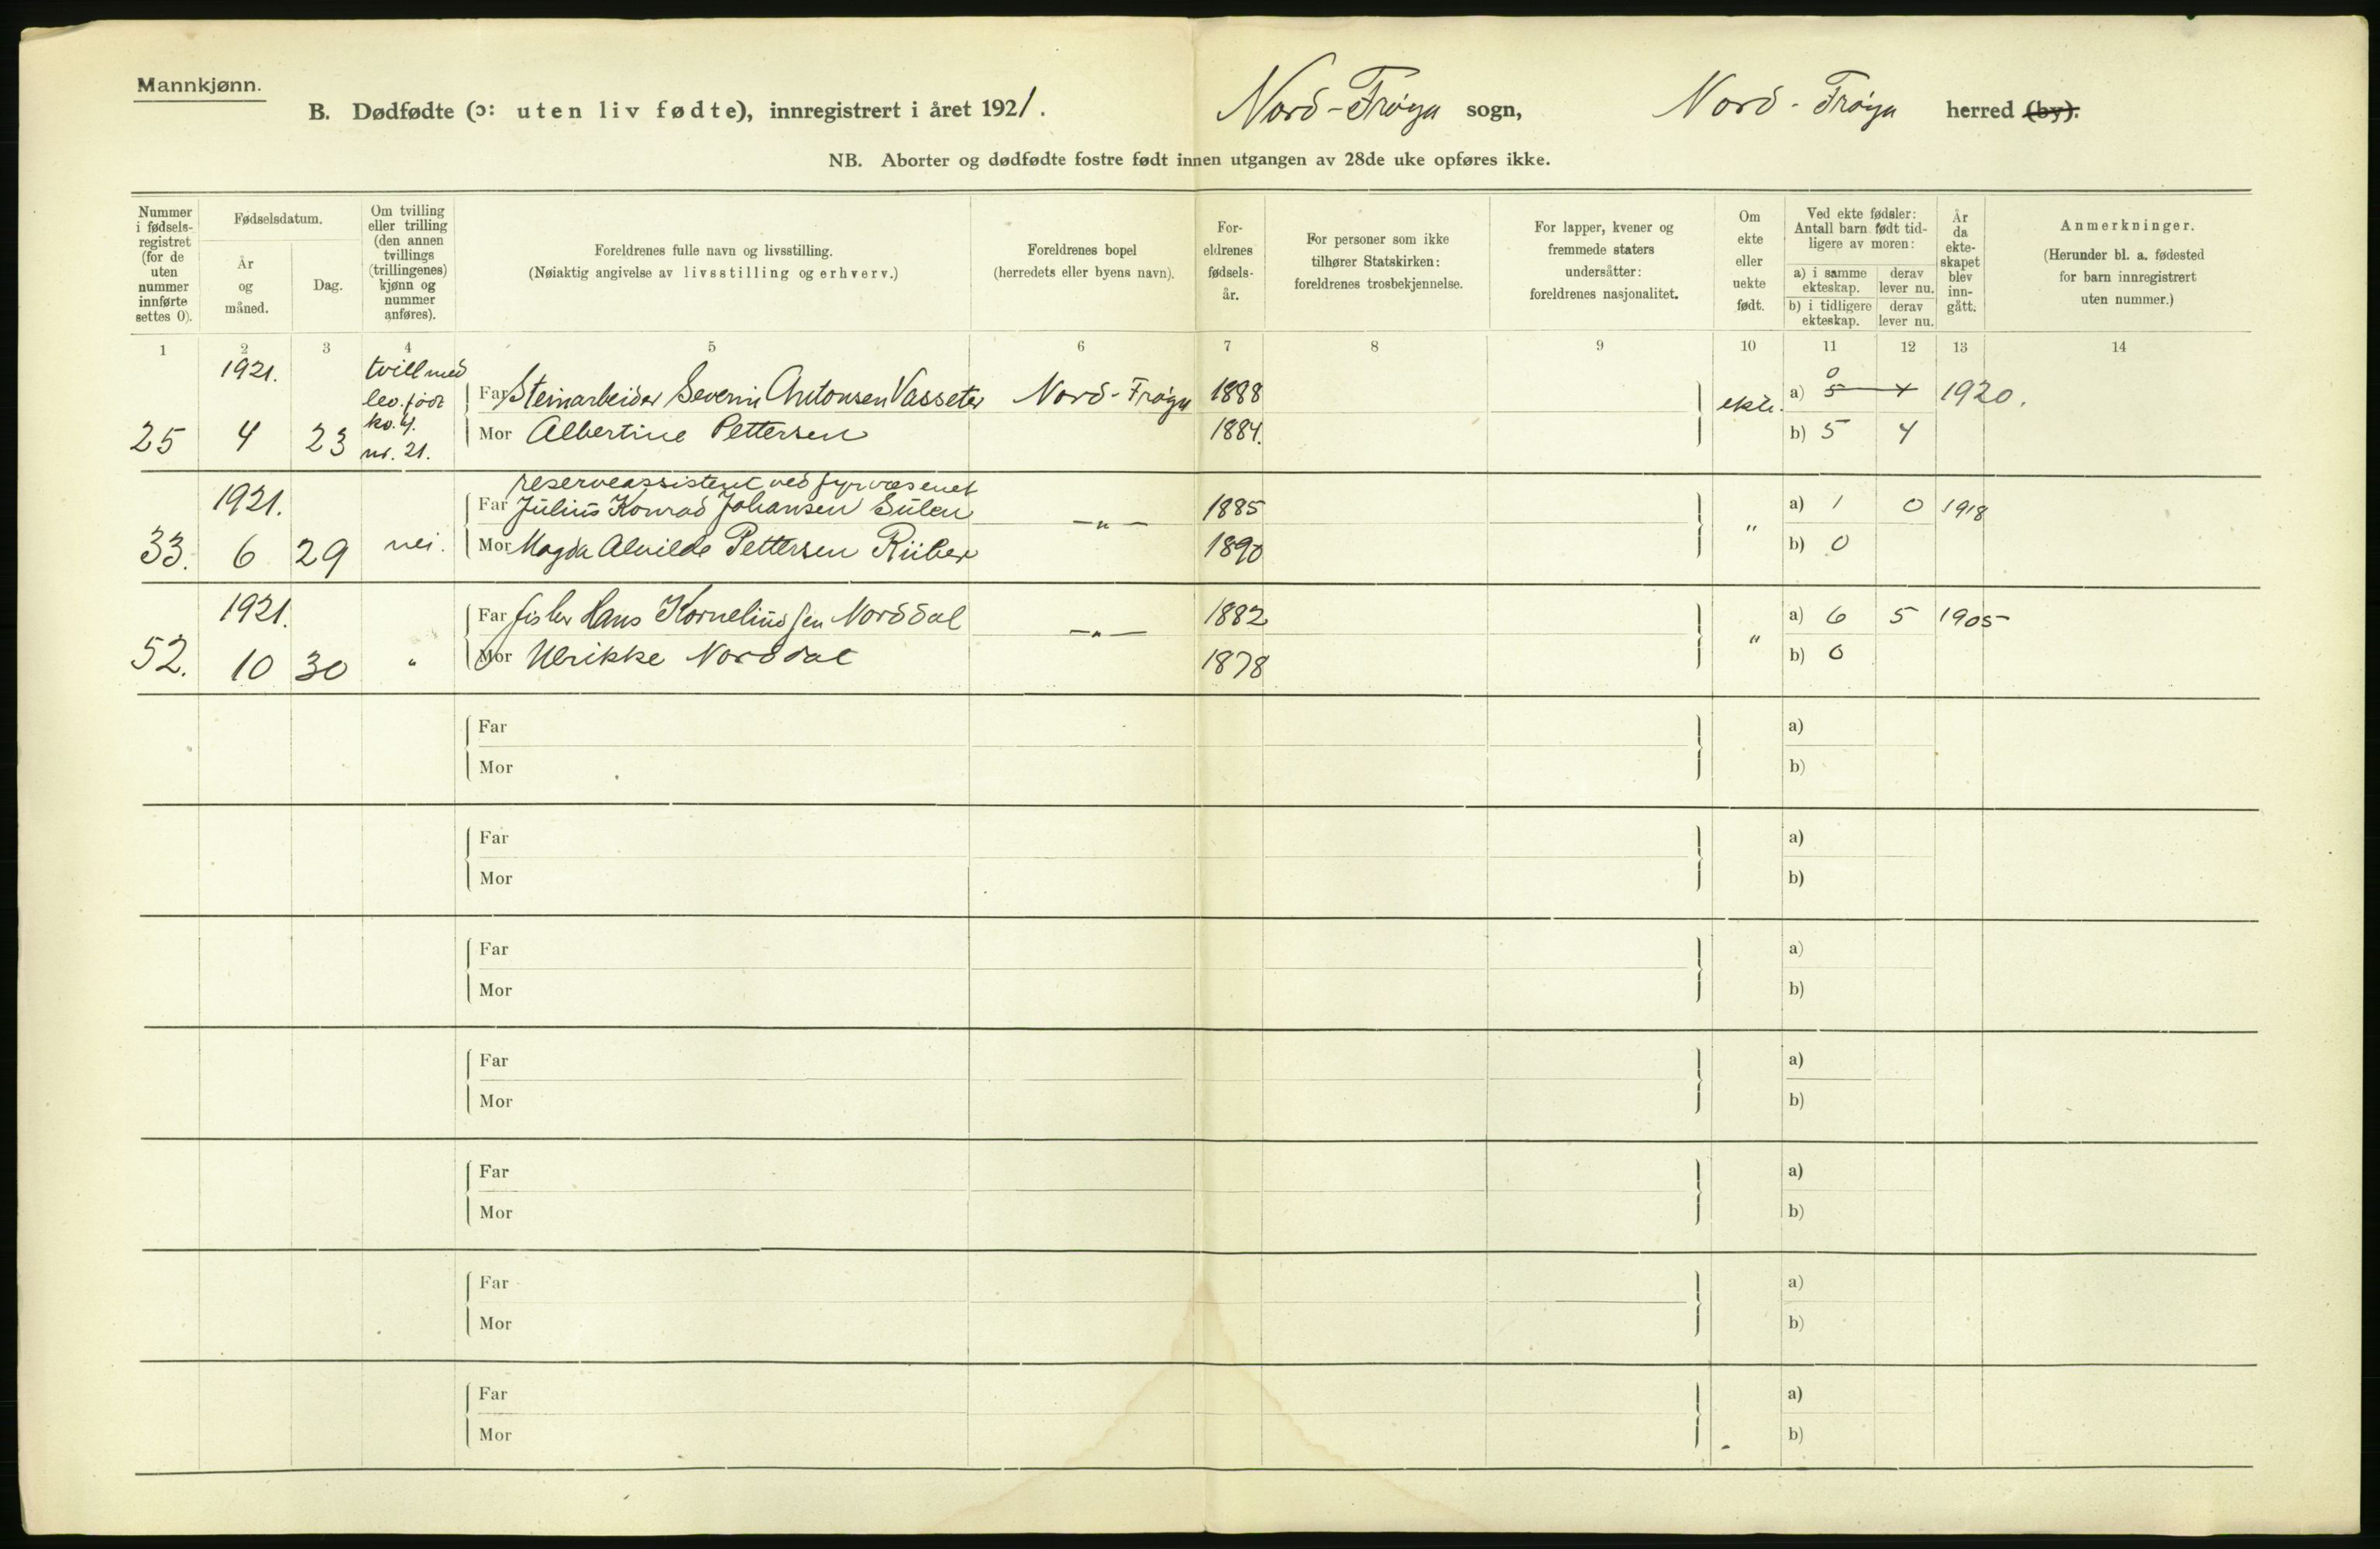 Mannkjønn.
B. Dødfødte (ɔ: uten liv fødte), innregistrert i året 1921. Nord-Frøya sogn, Nord-Frøya herred (by).
NB. Aborter og dødfødte fostre født innen utgangen av 28de uke opføres ikke.
Nummer i fødsels-registret (for de uten nummer innførte settes 0).
Fødselsdatum.
År og måned.
Dag.
Om tvilling eller trilling (den annen tvillings (trillingenes) kjønn og nummer anføres).
Foreldrenes fulle navn og livsstilling.
(Nøiaktig angivelse av livsstilling og erhverv.)
Foreldrenes bopel
(herredets eller byens navn).
For-eldrenes fødsels-år.
For personer som ikke tilhører Statskirken: foreldrenes trosbekjennelse.
For lapper, kvener og fremmede staters undersåtter: foreldrenes nasjonalitet.
Om ekte eller uekte født.
Ved ekte fødsler: Antall barn født tid-ligere av moren:
a) i samme ekteskap. derav lever nu.
b) i tidligere ekteskap. derav lever nu.
År da ekte-skapet blev inn-gått.
Anmerkninger.
(Herunder bl. a. fødested for barn innregistrert uten nummer.)
1 2 3 4 5 6 7 8 9 10 11 12 13 14
1921. tvill med 0
lev. født Far Steinarbeider Severin Antonsen Vasseter Nord-Frøya 1888 ekte. a) 5 4 1920.
25 4 23 ko. 4. nr. 21. Mor Albertine Pettersen 1884. b) 5 4
reserveassistent ved fyrvæsenet
1921. Far Julius Konrad Johansen Sulen -"- 1885 " a) 1 0 1918
33. 6 29 nei. Mor Magda Alvilde Pettersen 1890 b) 0
1921. Far fisker Hans Kornelius sen Norddal -"- 1882 " a) 6 5 1905
52. 10 30 " Mor Ulrikke Norddal 1878 b) 0
Far a)
Mor b)
Far a)
Mor b)
Far a)
Mor b)
Far a)
Mor b)
Far a)
Mor b)
Far a)
Mor b)
Far a)
Mor b)